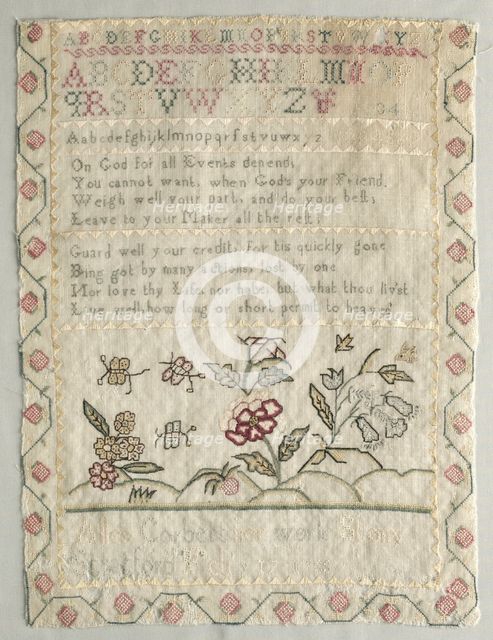 AB DEFG HIKLMNOPQRSTVWXYZ
ABCDEFGHIKLMNOP
QRSTVWXYZ
34
Aabcdefghijklmnopqrſstvuwx z
On God for all Events depend;
You cannot want, when God's your Friend.
Weigh well your part, and do your best;
Leave to your Maker all the rest.
Guard well your credit, for tis quickly gone
Being got by many actions, lost by one
Nor love thy Life, nor hate, but what thou liv'st
Live well, how long or short permit to heaven
Corbet work